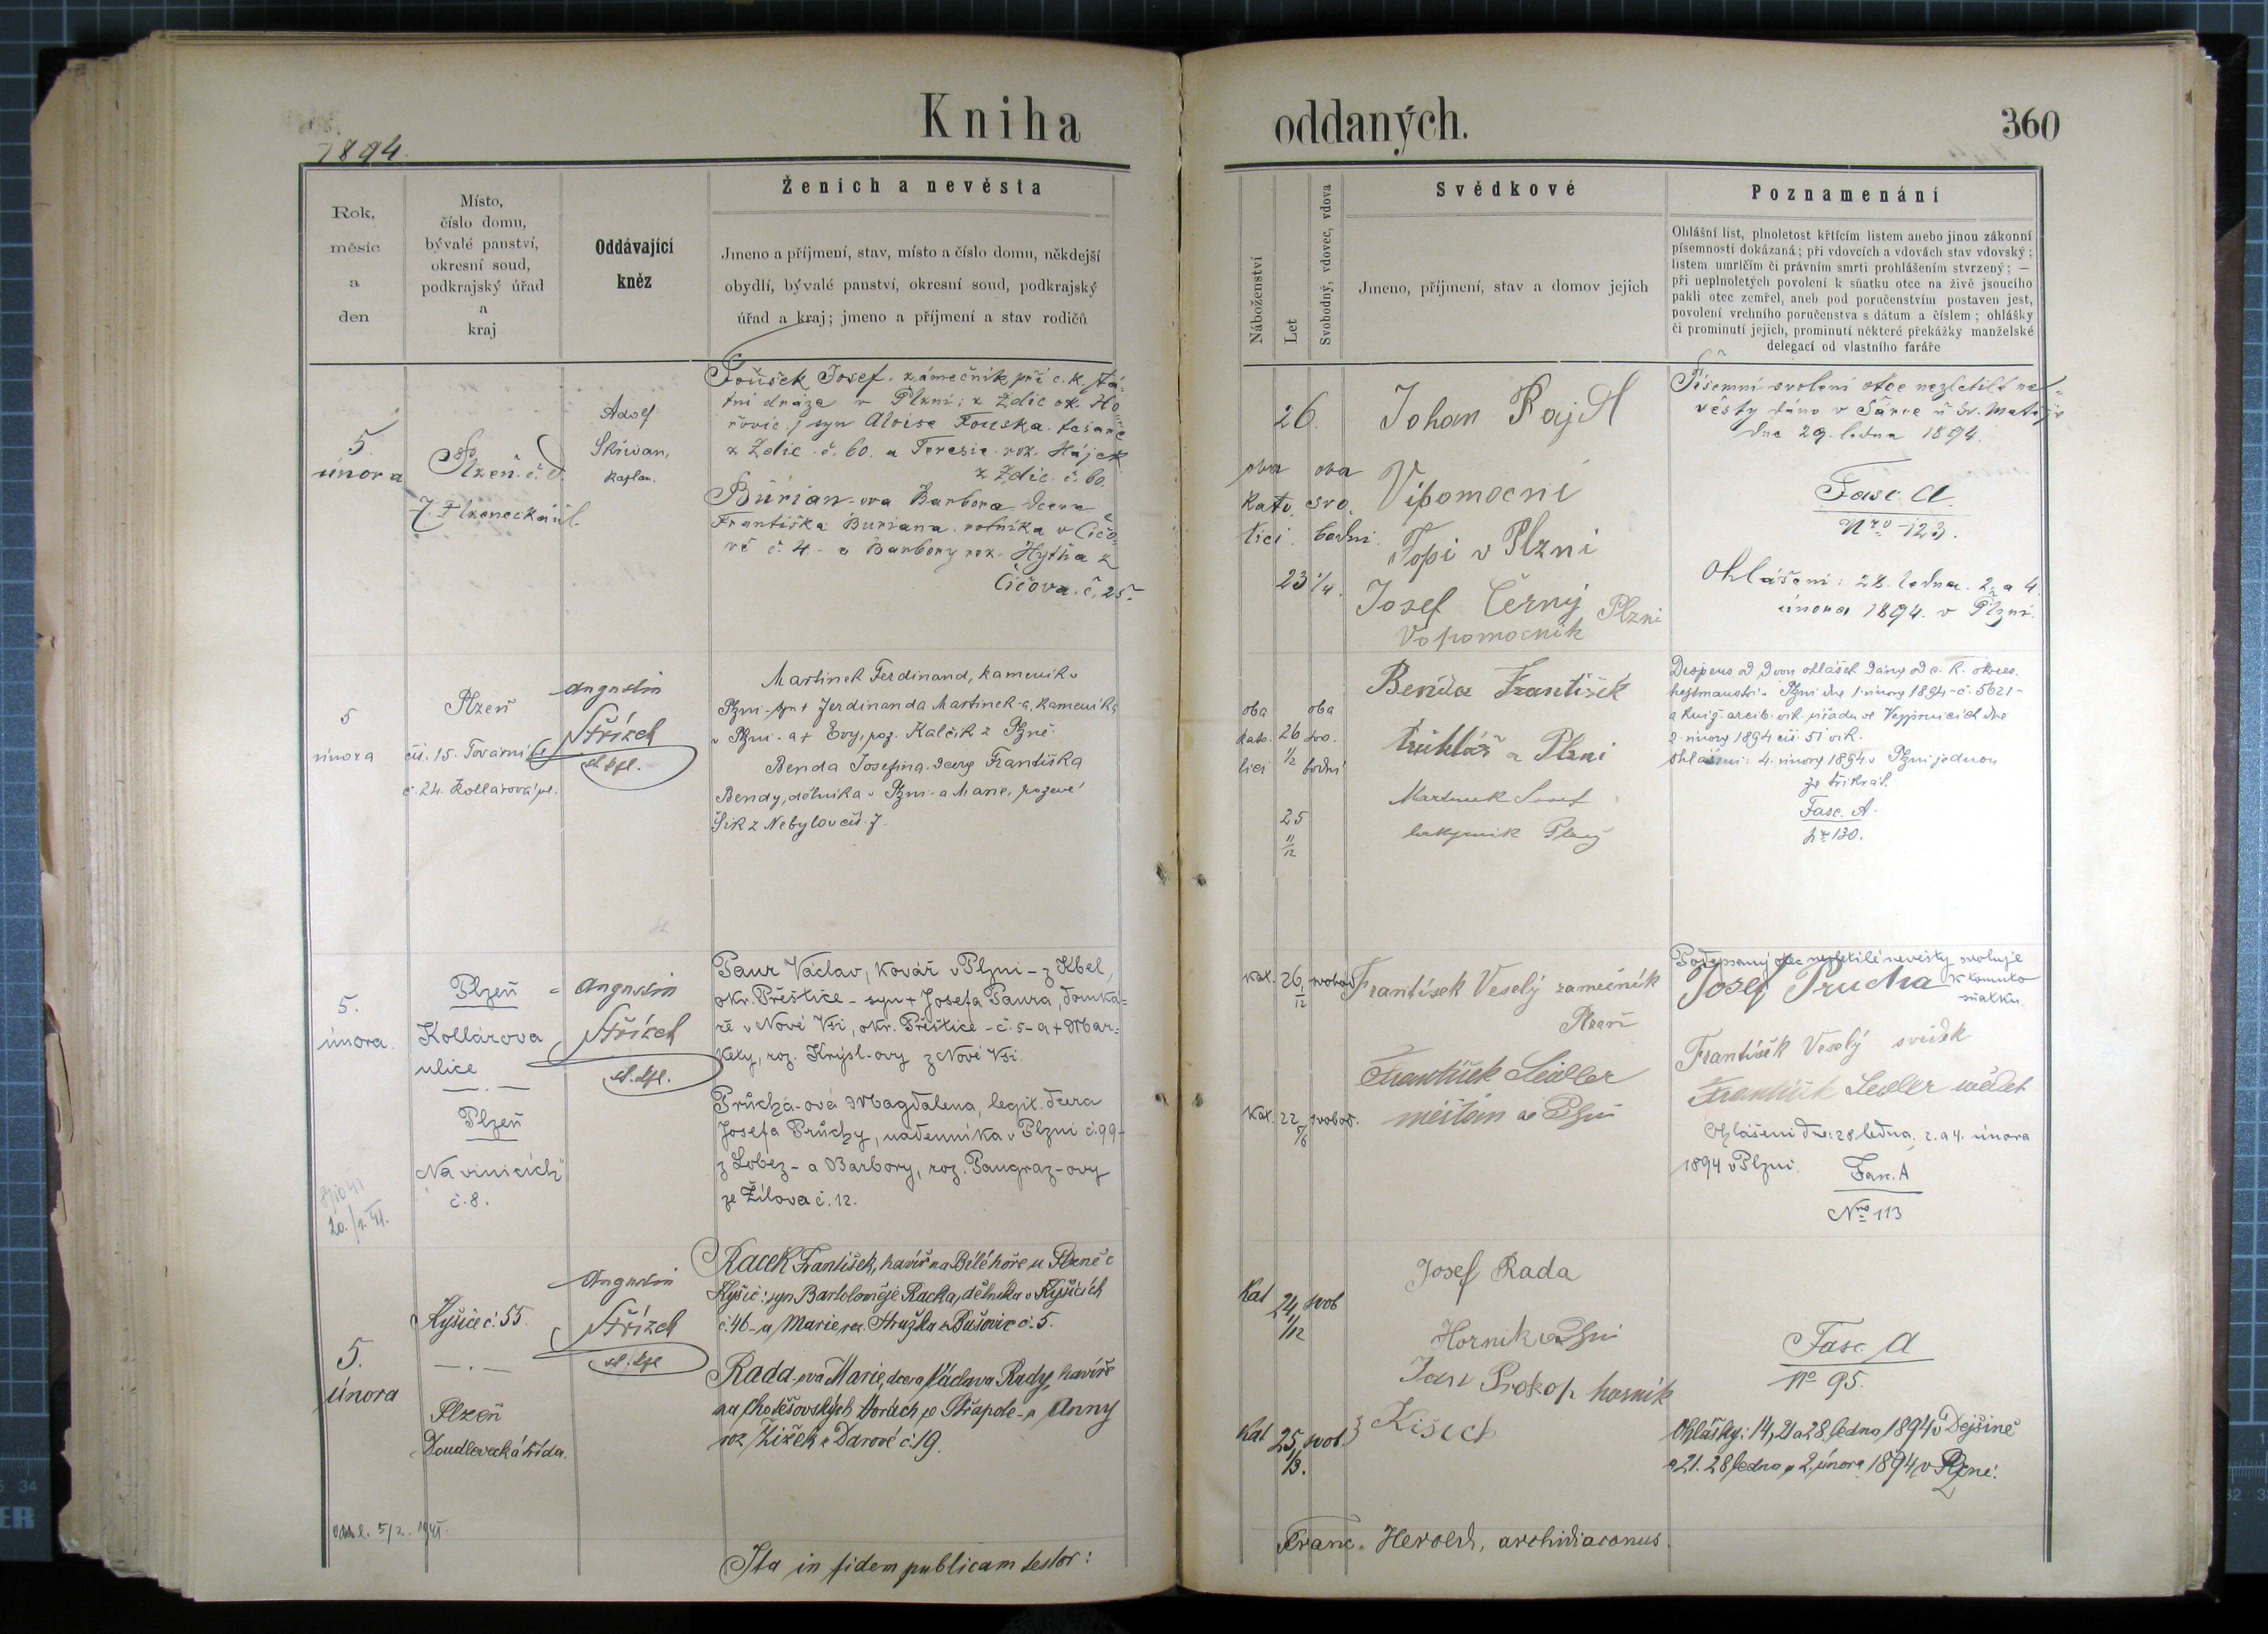 Kniha
oddaných.
360
1894.
Rok,
měsíc
a
den
Místo,
číslo domu,
bývalé panství,
okresní soud,
podkrajský úřad
a
kraj
Oddávající
kněz
Ženich a nevěsta
Jmeno a příjmení, stav, místo a číslo domu, někdejší
obydlí, bývalé panství, okresní soud, podkrajský
úřad a kraj; jmeno a příjmení a stav rodičů
Náboženství
Let
Svobodný, vdovec, vdova
Svědkové
Jmeno, příjmení, stav a domov jejich
Poznamenání
Ohlášní list, plnoletost křtícím listem anebo jinou zákonní
písemností dokázaná; při vdovcích a vdovách stav vdovský;
listem umrlčím či právním smrti prohlášením stvrzený; —
při neplnoletých povolení k sňatku otce na živě jsoucího
pakli otec zemřel, aneb pod poručenstvím postaven jest,
povolení vrchního poručenstva s dátum a číslem; ohlášky
či prominutí jejich, prominutí některé překážky manželské
delegací od vlastního faráře
5.
února
Plzeň. č. d.
7.
Adolf
Skřivan,
kaplan.
Josef. zámečník při c. k. stá-
tní dráze v Plzni: z Zdic ok. Ho-
řovic. syn Aloise
z Zdic. č. 60. a Teresie roz. Hájek
z Zdic. č. 60.
Burian-ova Barbora dcera
Františka Buriana. rolníka v Čičo-
vě č. 4. a Barbory roz. z
Čičova. č. 25.
26.
oba oba
kato svo
líci. bodni.
23 1/4.
Johan Rajtl
Vipomocni
Topi v Plzni
Josef Černý Plzni
Vopomocnik
Písemní svolení otce nezletilé ne-
věsty dáno v u Sv. Matěje
dne 29. ledna 1894.
Fasc. A
Nro 123.
Ohlášeni: 28. ledna. 2. a 4.
února 1894. v Plzni.
5
února
Plzeň
čís. 15. Tovární ul.
č. 24. Kollárova ul.
Augustin
Střízek
st. kpl.
Martinek Ferdinand, kameník v
Plzni. syn + Ferdinanda Martinek-a, kameníka
v Plzni. a + Evy, roz. Kalčík z Plzně.
Benda Josefina. dcera Františka
Bendy, dělníka v Plzni. a Marie, rozené
Šik z Nebylov čís. 7.
oba oba
kato. 26 svo.
líci 1/2 bodní
25
11/12
Benda František
truhlář z Plzni
Martinek Josef
Plzeň
Dispens od dvou ohlášek dány od c. k. okres.
hejtmanství v Plzni dne 1. února 1894 č. 5621-
a kníž. arcib. vik. úřadu ve Vejprnicích dne
2. února 1894 čís. 51 vik.
Ohlášeni: 4. února 1894 v Plzni jednou
za třikrát.
Fasc. A.
130.
5.
února.
Plzeň
Kollárova
ulice
Plzeň
Na vinicích
č. 8.
Augustin
Střízek
st. kpl.
Paur Václav, kovář v Plzni - z Kbel,
okr. Přeštice - syn + Josefa Paura, domká-
ře v Nové Vsi, okr. Přeštice - č. 5 - a + Mar-
kety, roz. Krýsl-ovy z Nové Vsi.
Průcha-ová Magdalena, legit. dcera
Josefa Průchy, nádenníka v Plzni č. 99 -
z Lobez - a Barbory, roz. Pangraz-ovy
ze Žilova č. 12.
kat. 26 1/12 svobod
kat. 22 5/6 svobod.
František Veselý zamečník
Plzeň
František Seidler
měštan v Plzni
Podepsaný otec nezletilé nevěsty svoluje
Josef Prucha k tomuto
sňatku.
František Veselý svědek
František Seidler svědek
Ohlášeni dne: 28 ledna, 2. a 4. února
1894 v Plzni. Fasc. A
Nro 113
5.
února
Kyšice č. 55.
Plzeň
Doudlevecká třída.
Augustin
Střízek
st. kpl
Racek František, havíř na Bílé hoře u Plzně z
Kyšic: syn Bartoloměje Racka, dělníka v Kyšicích
č. 46 - a Marie, roz. Stružka z Bušovic č. 5.
Rada-ova Marie, dcera Václava Rady, havíře
na Chotěšovských Horách, - a Anny
roz Žižek z Darové č. 19.
kat 24 1/12 svob
kat 25 1/3. svob.
Josef Rada
Hornik v Plzni
Jan Prokop hornik
z Kišich
Fasc. A
No 95.
Ohlášky: 14, 21 a 28 ledna 1894 v Dejšině
a 21. 28 ledna a 2. února 1894 v Plzni.
5/2. 1941.
Ita in fidem publicam testor:
Franc. Herold, archidiaconus.